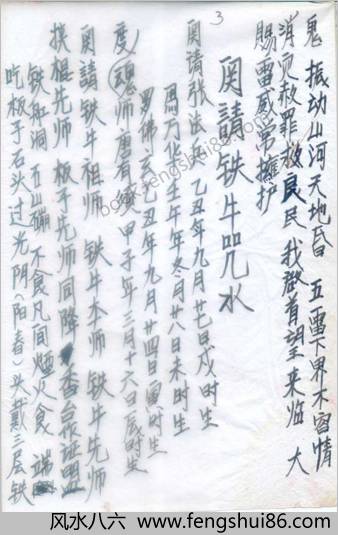 3
鬼 摇动山河天地昏 五雷下界不容情
消灾赦罪救良民 我登首望来临 大
赐雷威常擁护
関請铁牛咒水
関请张法兵 乙丑年九月廿七日戌时生
周万华壬午年冬月廿八日未时生
罗佛玄乙丑年九月廿四日寅时生
度魂师唐有缘甲子年三月十六日辰时生
関請铁牛祖师 铁牛本师 铁牛先师
扶棍先师 板子先师同降 香台作证盟
铁缸洞 石山硼 不食凡间烟火食 端
吃板子石头过光阴(阳春)头戴三层铁
风水八六 www.fengshui86.com